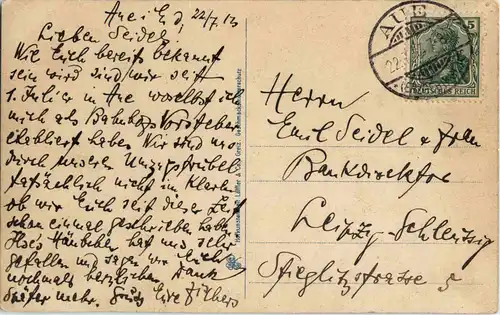 Aue i Erzg. 22/7.13
Lieben Seidel!
Wie Euch bereits bekannt
sein wird sind wir seit
1. Juli er in Aue woselbst ich
mich als Bahnhofs Vorsteher
etabliert habe. Wir sind uns
durch unseren Umzugstrubel
tatsächlich nicht im Klaren
ob wir Euch seit dieser Zeit
schon einmal geschrieben haben.
Häubchen hat uns sehr
gefallen und sagen wir Euch
nochmals herzlichen Dank
Später mehr. Gruß Eure
AUE
5
DEUTSCHES REICH
Herrn
Emil Seidel u Frau
Bankdirektor
Leipzig-Schleussig
Stieglitzstrasse 5